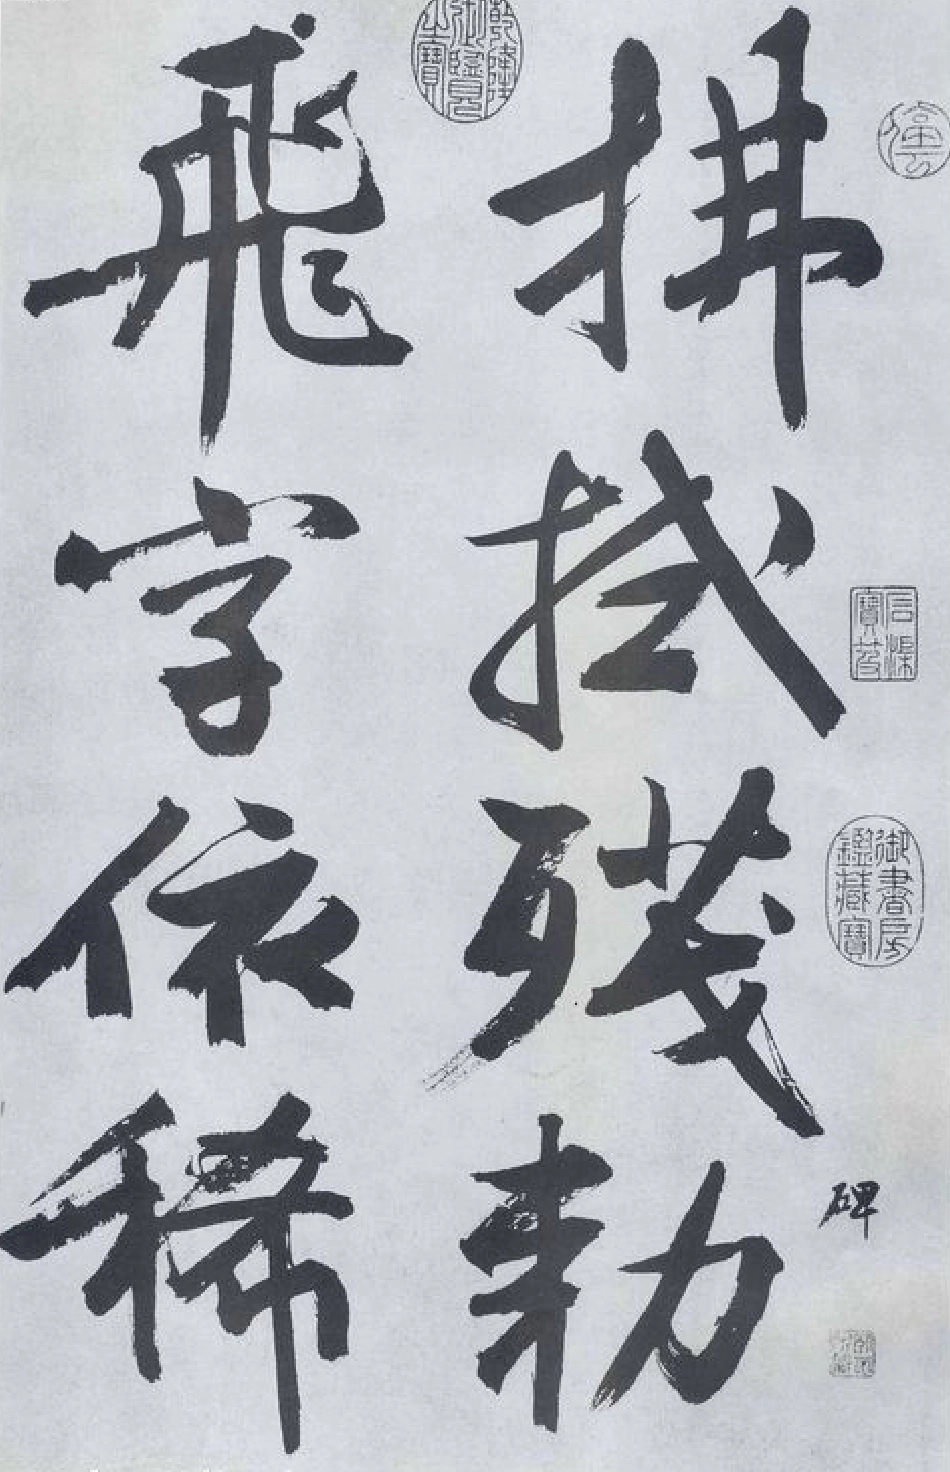 碑
拂拭殘勑
飛字依稀
乾隆御覽之寶
石渠寶笈
御書房鑑藏寶